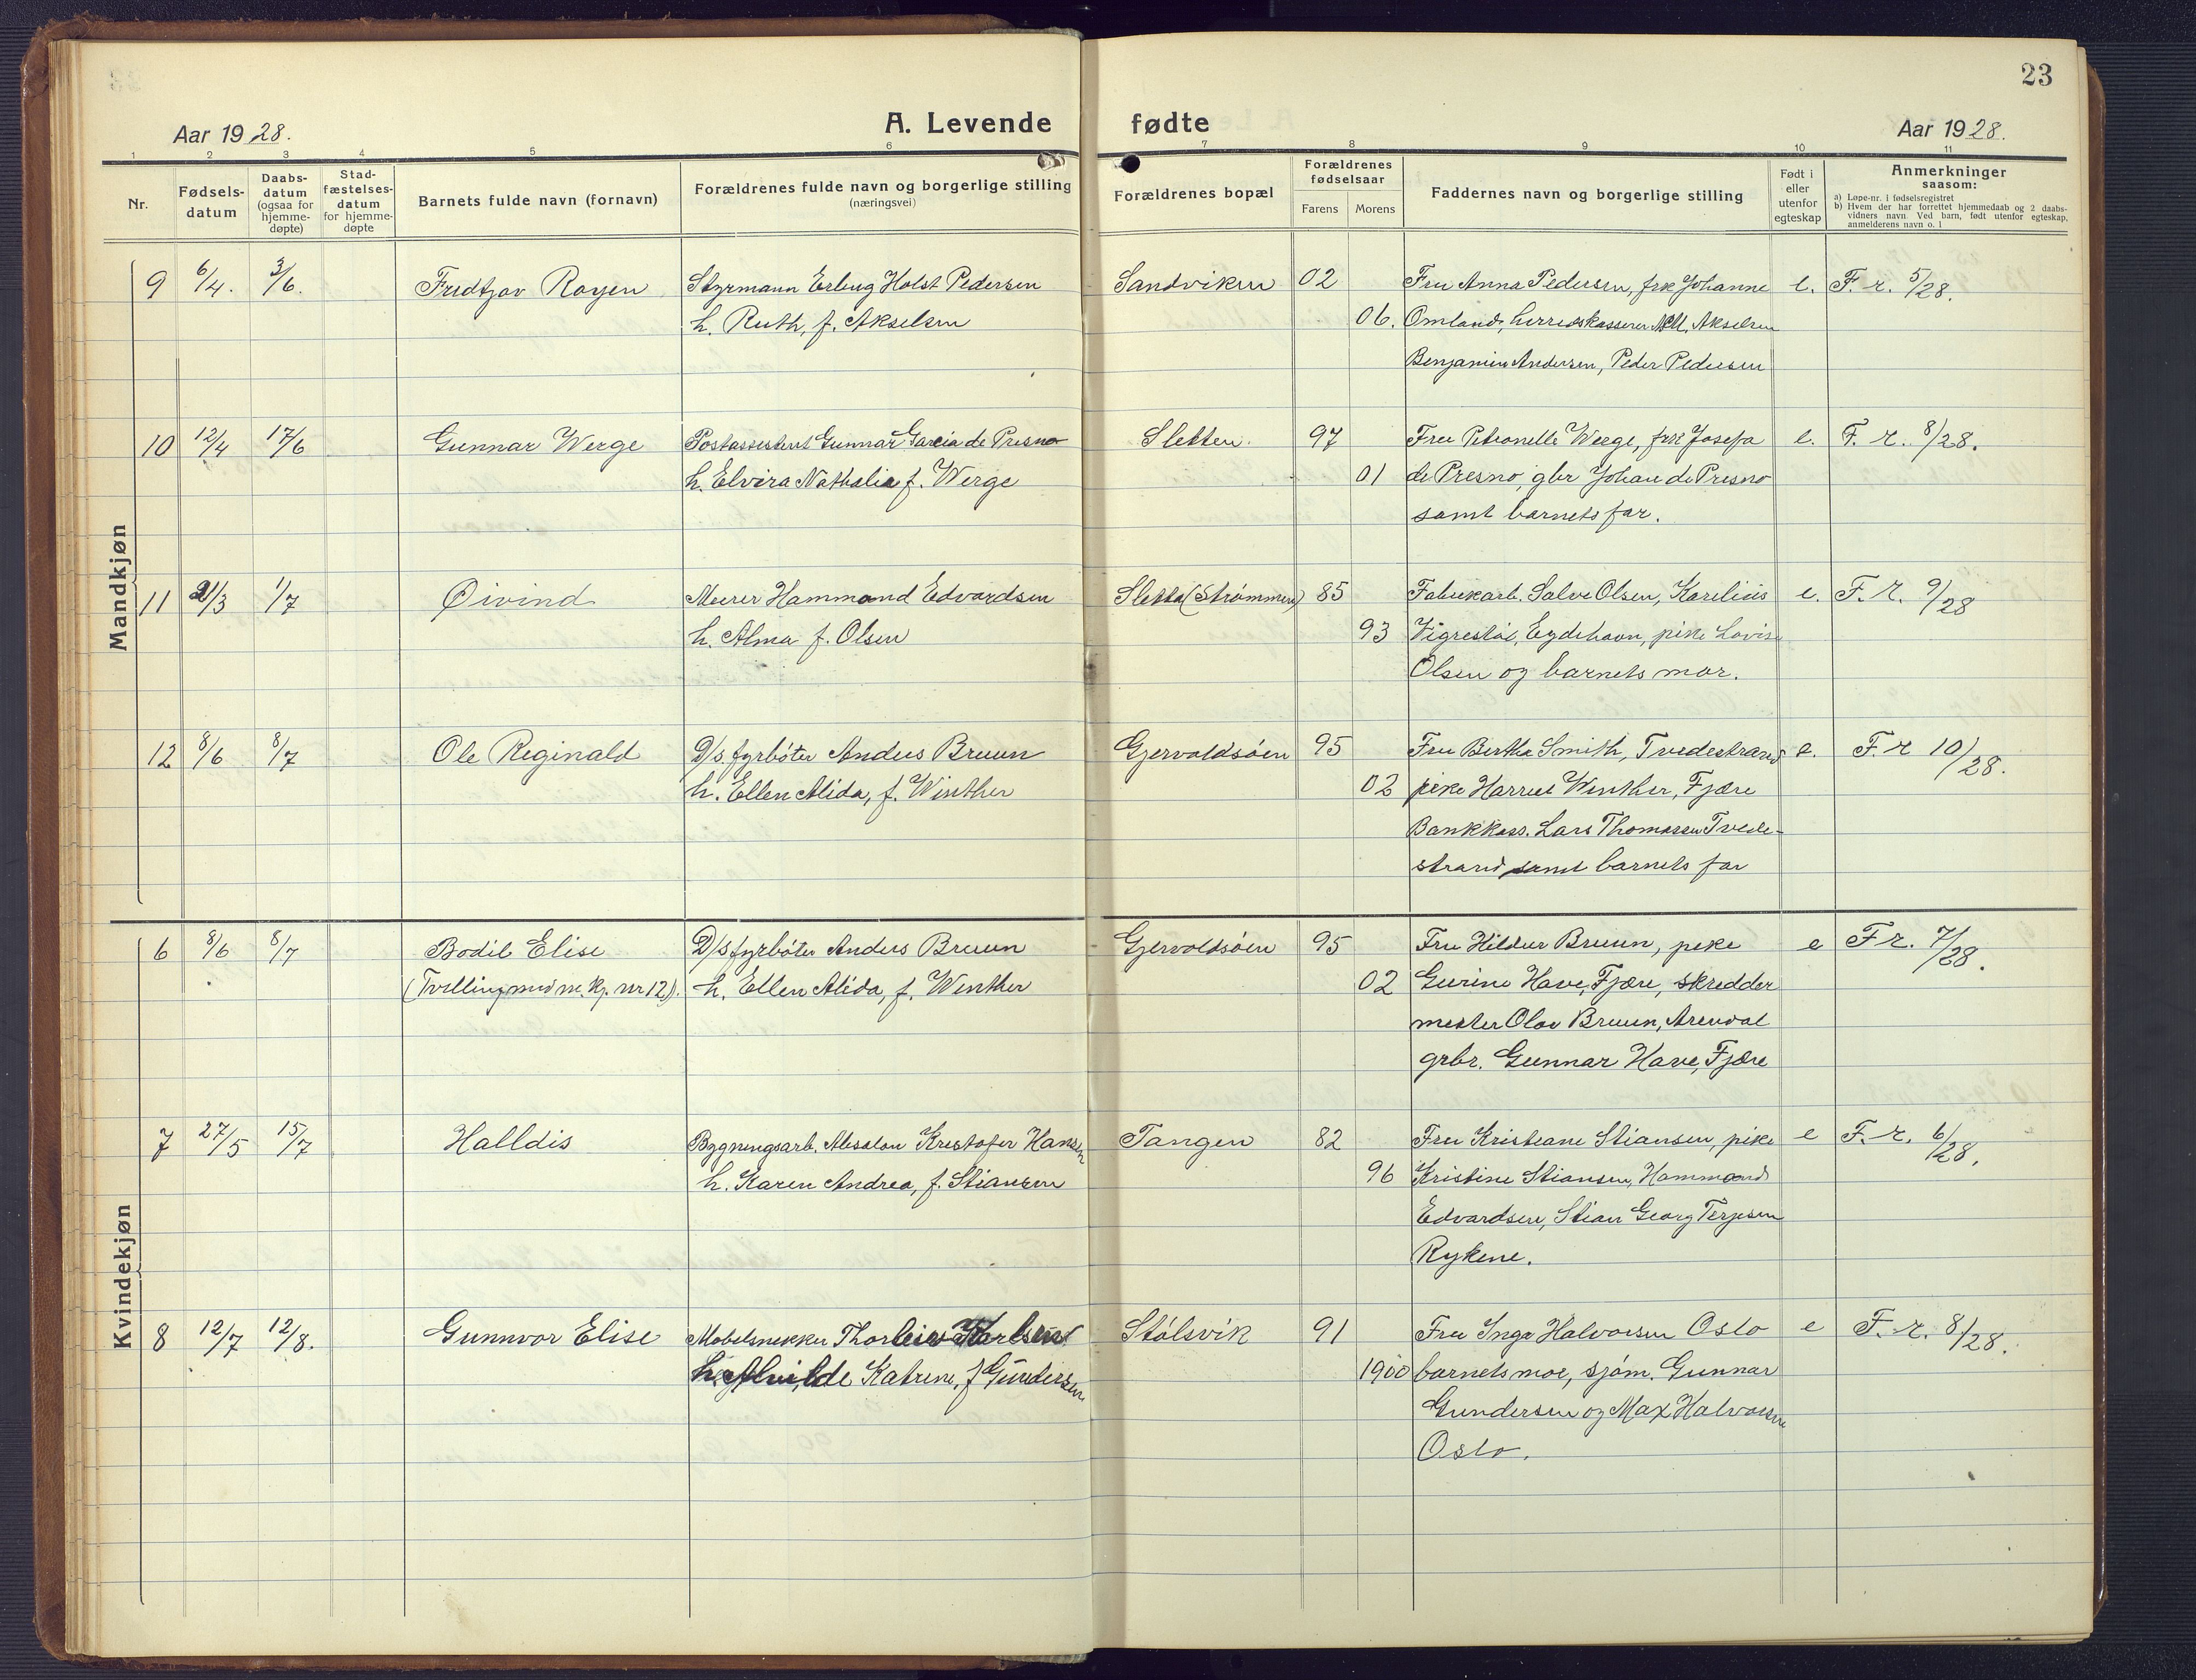 23
Aar 1928.
A. Levende fødte
Aar 1928.
1 2 3 4 5 6 7 8 9 10 11
Nr.
Fødsels-
datum
Daabs-
datum
(ogsaa for
hjemme-
døpte)
Stad-
fæstelses-
datum
for hjemme-
døpte
Barnets fulde navn (fornavn)
Forældrenes fulde navn og borgerlige stilling
(næringsvei)
Forældrenes bopæl
Forældrenes
fødselsaar
Farens Morens
Faddernes navn og borgerlige stilling
Født i
eller
utenfor
egteskap
Anmerkninger
saasom:
a) Løpe-nr. i fødselsregistret
b) Hvem der har forrettet hjemmedaab og 2 daabs-
vidners navn. Ved barn, født utenfor egteskap,
anmelderens navn o. l
Mandkjøn
9 6/4. 3/6. Fridtjov Royen Styrmann Erling Holst Pedersen Sandviken 02 Fru Anna Pedersen, frk Johanne e. F. r. 5/28.
h. Ruth, f. Akselsen 06. Omland, herredskasserer Akselsen
Benjamin Andersen, Peder Pedersen
10 12/4 17/6 Gunnar Werge Postassistent Gunnar Garcia de Presno Sletten. 97 Fru Petronelle Werge, frk Josefa e. F. r. 8/28.
h. Elvira Nathalia f. Werge 01 de Presno, gbr Johan de Presno
samt barnets far.
11 21/3 1/7 Øivind Murer Hammond Edvardsen Sletta (Strømmen) 85 Fabrikarb. Salve Olsen, Karelius e. F. r. 9/28
h. Alma f. Olsen 93 Vigrestøl, Eydehavn, pike Lovise
Olsen og barnets mor.
12 8/6 8/7 Ole Reginald D/s. fyrbøter Anders Bruun Gjervoldsøen 95 Fru Bertha Smith, Tvedestrand e. F. r 10/28.
h. Ellen Alida, f. Winther 02 pike Harriet Winther, Fjære
Bankkass. Lars Thomassen Tvede-
strand samt barnets far
Kvindekjøn
6 8/6 8/7 Bodil Elise D/s fyrbøter Anders Bruun Gjervoldsøen 95 Fru Hildur Bruun, pike e F r. 7/28.
(Tvilling med m. kj. nr 12). h. Ellen Alida, f. Winther 02 Gurine Have, Fjære, skredder
mester Olav Bruun, Arendal
grbr. Gunnar Have, Fjære
7 27/5 15/7 Halldis Bygningsarb. Absalon Kristofer Hansen Tangen 82 Fru Kristiane Stiansen, pike e F. r. 6/28.
h. Karen Andrea, f. Stiansen 96 Kristine Stiansen, Hammond
Edvardsen, Stian Georg Terjesen
Rykene.
8 12/7 12/8. Gunnvor Elise Møbelsnekker Thorleif Karlsen Stølsvik 91 Fru Inga Halvorsen Oslo e F. r. 8/28.
h. Alvilde Katrine, f Gundersen 1900 barnets mor, sjøm. Gunnar
Gundersen og Max Halvorsen
Oslo.